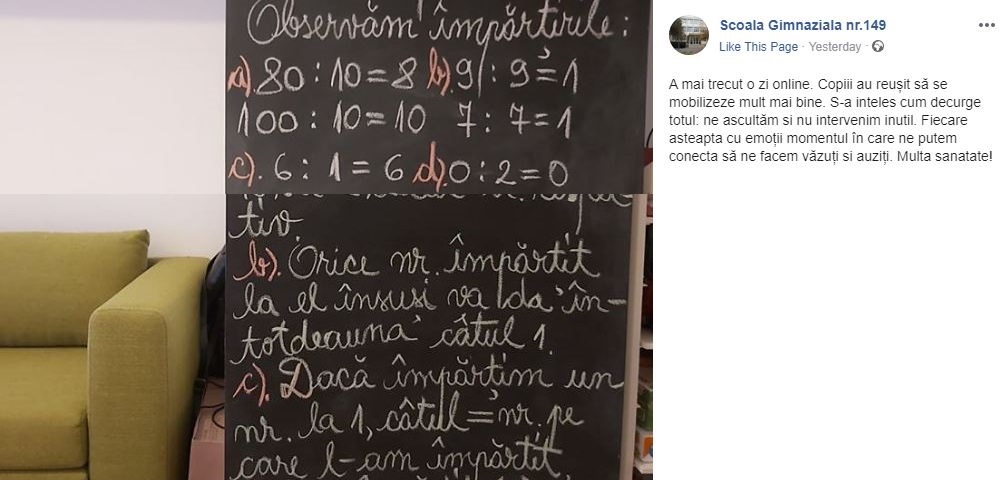 Observăm împărțirile:
a) 80 : 10 = 8 b) 9 : 9 = 1
100 : 10 = 10 7 : 7 = 1
c). 6 : 1 = 6 d) 0 : 2 = 0
tiv.
b). Orice nr. împărțit
la el însuși va da în-
totdeauna câtul 1.
c). Dacă împărțim un
nr. la 1, câtul = nr. pe
care l-am împărțit
Scoala Gimnaziala nr.149
Like This Page · Yesterday ·
A mai trecut o zi online. Copiii au reușit să se
mobilizeze mult mai bine. S-a inteles cum decurge
totul: ne ascultăm si nu intervenim inutil. Fiecare
asteapta cu emoții momentul în care ne putem
conecta să ne facem văzuți si auziți. Multa sanatate!